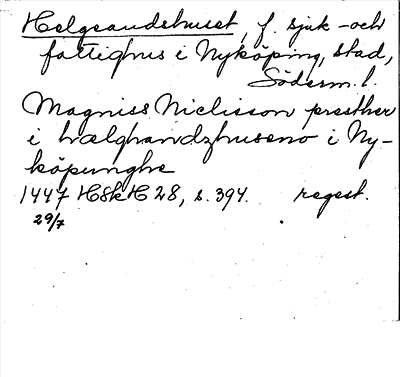 Helgeandshuset, f. sjuk- och
fattighus i Nyköping, stad,
Söderm. l.
Magniss Niclisson presther
i hælghandzhuseno i Ny-
köpunghe
1447 HSkH 28, s. 394. regest.
29/7